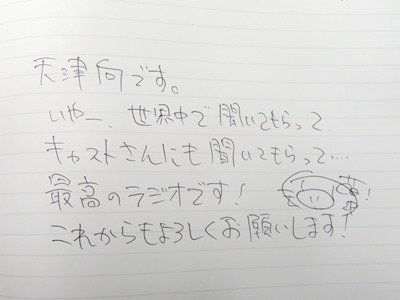 天津向です。
いやー、世界中で聞いてもらって、
キャストさんにも聞いてもらって…
最高のラジオです!
これからもよろしくお願いします!